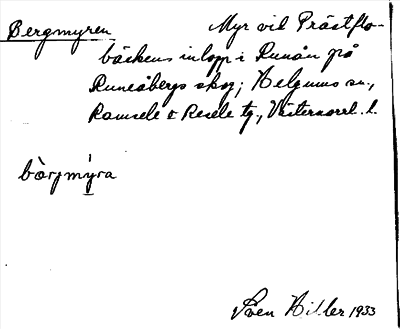 Bergmyren Myr vid Prästflo-
bäckens inlopp i Runån på
Runsåbergs skog; Helgums sn.,
Ramsele o Resele tg., Västernorrl. l.
bàrjmýra
Sven Hiller 1933